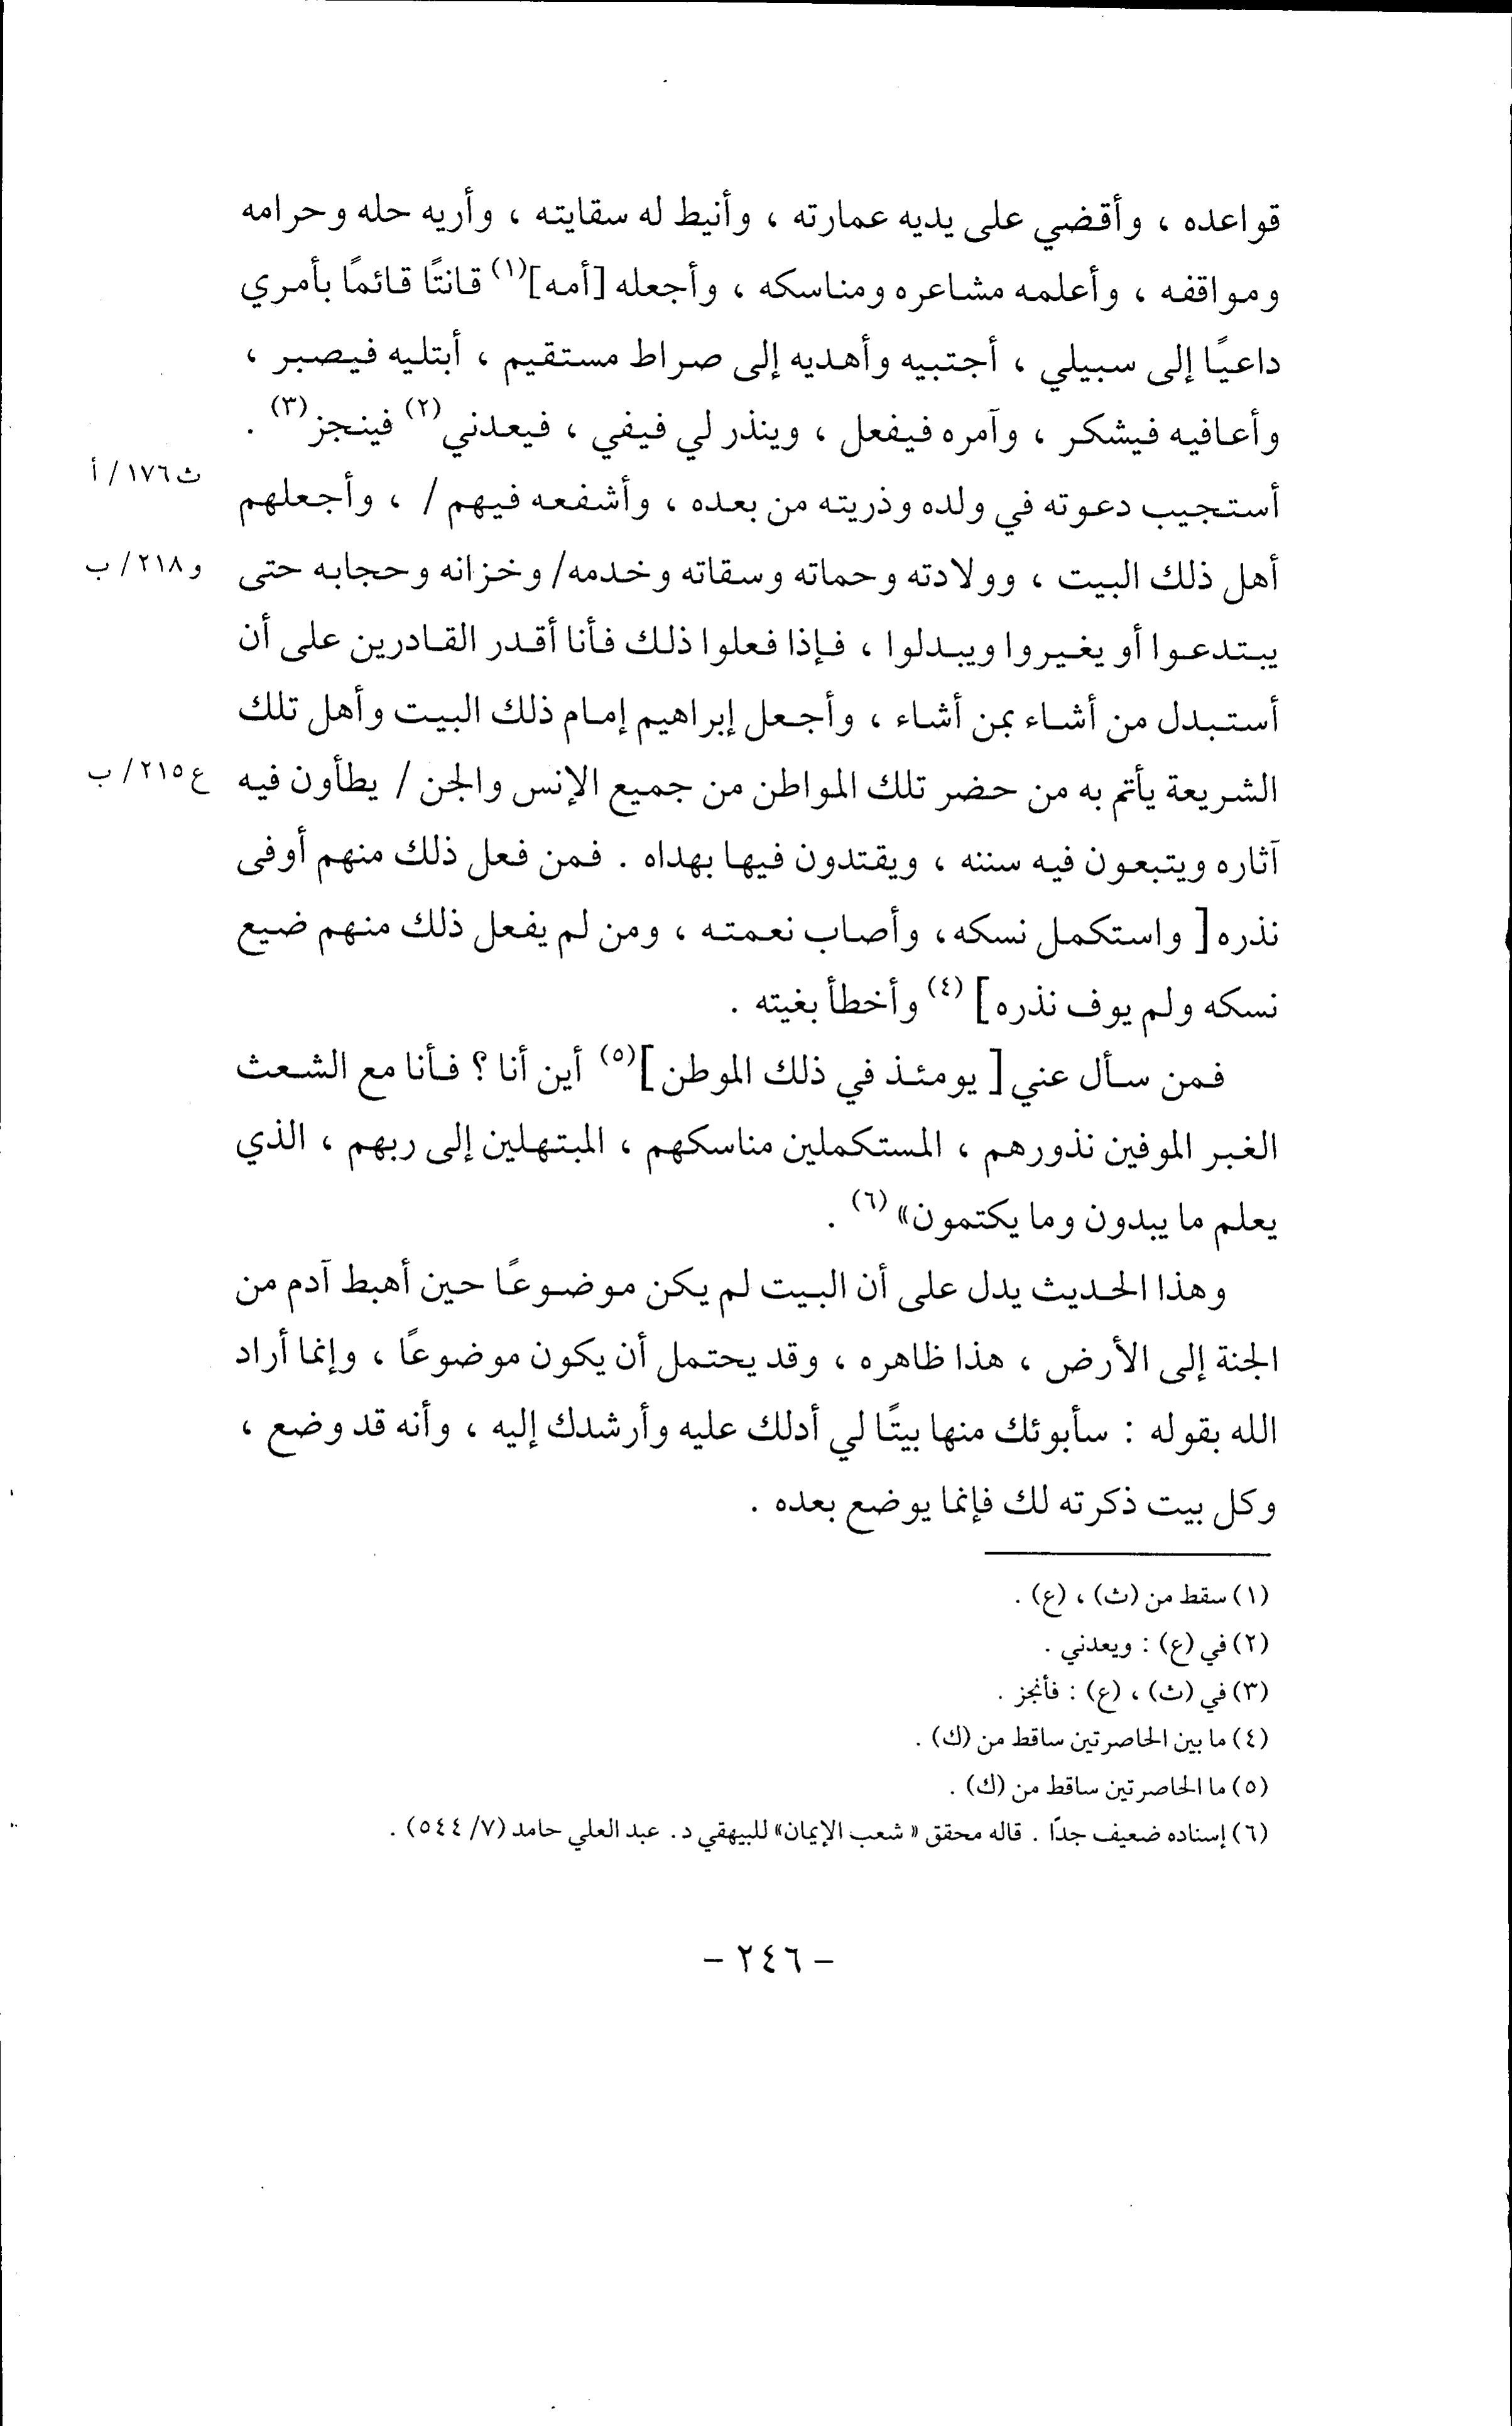 قواعده ، وأقضي على يديه عمارته ، وأنيط له سقايته ، وأريه حله وحرامه
ومواقفه ، وأعلمه مشاعره ومناسكه ، وأجعله [أمه](١) قانتًا قائمًا بأمري
داعيًا إلى سبيلي ، أجتبيه وأهديه إلى صراط مستقيم ، أبتليه فيصبر ،
وأعافيه فيشكر ، وآمره فيفعل ، وينذر لي فيفي ، فيعدني(٢) فينجز(٣) .
ث١٧٦/ أ
أستجيب دعوته في ولده وذريته من بعده ، وأشفعه فيهم/ ، وأجعلهم
أهل ذلك البيت ، وولادته وحماته وسقاته وخدمه/ وخزانه وحجابه حتى
و٢١٨/ ب
يبتدعوا أو يغيروا ويبدلوا ، فإذا فعلوا ذلك فأنا أقدر القادرين على أن
أستبدل من أشاء بمن أشاء ، وأجعل إبراهيم إمام ذلك البيت وأهل تلك
الشريعة يأتم به من حضر تلك المواطن من جميع الإنس والجن / يطأون فيه
ع٢١٥/ ب
آثاره ويتبعون فيه سننه ، ويقتدون فيها بهداه . فمن فعل ذلك منهم أوفى
نذره [ واستكمل نسكه، وأصاب نعمته ، ومن لم يفعل ذلك منهم ضيع
نسكه ولم يوف نذره] (٤) وأخطأ بغيته .
فمن سأل عني [ يومئذ في ذلك الموطن](٥) أين أنا ؟ فأنا مع الشعث
الغبر الموفين نذورهم ، المستكملين مناسكهم ، المبتهلين إلى ربهم ، الذي
يعلم ما يبدون وما يكتمون» (٦) .
وهذا الحديث يدل على أن البيت لم يكن موضوعًا حين أهبط آدم من
الجنة إلى الأرض ، هذا ظاهره ، وقد يحتمل أن يكون موضوعًا ، وإنما أراد
الله بقوله : سأبوئك منها بيتًا لي أدلك عليه وأرشدك إليه ، وأنه قد وضع ،
وكل بيت ذكرته لك فإنما يوضع بعده .
(١) سقط من (ث) ، (ع) .
(٢) في (ع) : ويعدني .
(٣) في (ث) ، (ع) : فأنجز .
(٤) ما بين الحاصرتين ساقط من (ك) .
(٥) ما الحاصرتين ساقط من (ك) .
(٦) إسناده ضعيف جدًا . قاله محقق « شعب الإيمان» للبيهقي د. عبد العلي حامد (٧/ ٥٤٤) .
- ٢٤٦ -